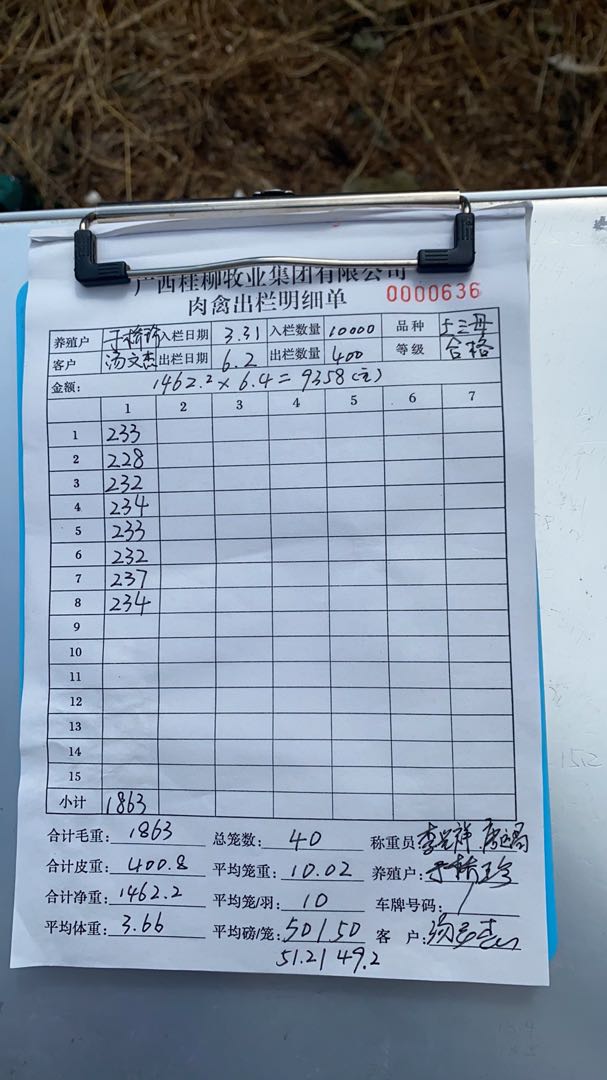 广西桂柳牧业集团有限公司
肉禽出栏明细单 0000636
养殖户 入栏日期 3.31 入栏数量 10000 品种 土三母
客户 汤文杰 出栏日期 6.2 出栏数量 400 等级 合格
金额: 1462.2 × 6.4 = 9358(元)
1 2 3 4 5 6 7
1 233
2 228
3 232
4 234
5 233
6 232
7 237
8 234
9
10
11
12
13
14
15
小计 1863
合计毛重: 1863 总笼数: 40 称重员:
合计皮重: 400.8 平均笼重: 10.02 养殖户:
合计净重: 1462.2 平均笼/羽: 10 车牌号码: /
平均体重: 3.66 平均磅/笼: 50 | 50 客 户:
51.2 | 49.2